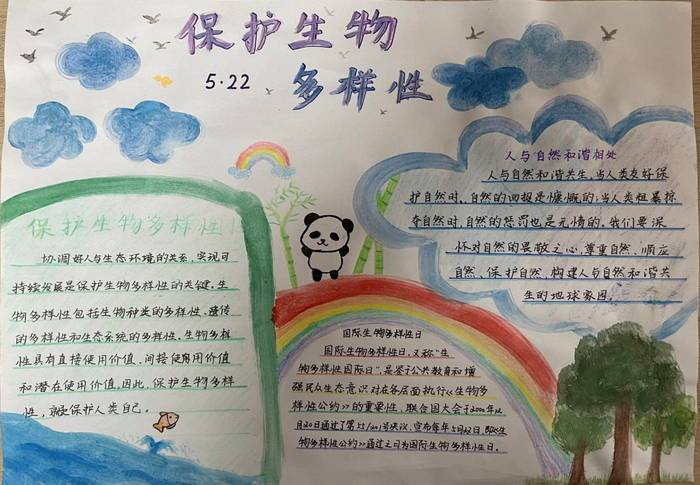 保护生物
5·22
多样性
保护生物多样性!
协调好人与生态环境的关系,实现可
持续发展是保护生物多样性的关键,生
物多样性包括生物种类的多样性、遗传
的多样性和生态系统的多样性。生物多样
性具有直接使用价值、间接使用价值
和潜在使用价值,因此,保护生物多样
性,就是保护人类自己。
国际生物多样性日
国际生物多样性日,又称"生
物多样性国际日",是鉴于公共教育和增
强民众生态意识对在各层面执行《生物多
样性公约》的重要性,联合国大会于2000年12
月20日通过了第55/201号决议,宣布每年5月22日,即《生
物多样性公约》通过之日为国际生物多样性日。
人与自然和谐相处
人与自然和谐共生,当人类友好保
护自然时,自然的回报是慷慨的;当人类粗暴掠
夺自然时,自然的惩罚也是无情的。我们要深
怀对自然的敬畏之心,尊重自然、顺应
自然、保护自然,构建人与自然和谐共
生的地球家园。